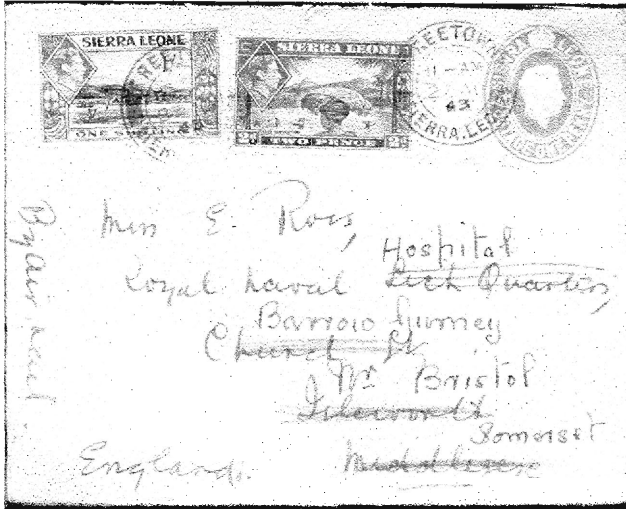 SIERRA LEONE
ONE SHILLING
SIERRA LEONE
TWO PENCE
FREETOWN
11 - AM
43
SIERRA.LEONE
By Air Mail.
Miss E. Ross,
Hospital
Royal Naval Sick Quarters,
Barrow Gurney
Church St.
Nr Bristol
Isleworth
Somerset
Middlesex
England.